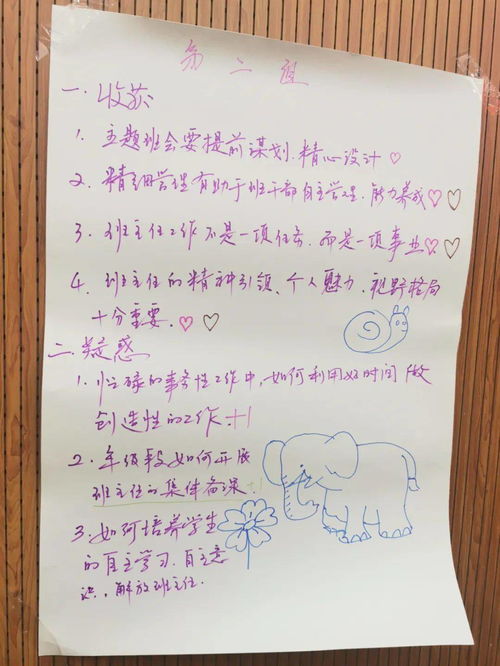 第二组
一.收获
1. 主题班会要提前谋划.精心设计♡
2. 精细管理有助于班干部自主管理.能力养成♡♡
3. 班主任工作不是一项任务.而是一项事业♡♡
4. 班主任的精神引领、个人魅力.视野格局
十分重要.♡♡
二.疑惑
1. 忙碌的事务性工作中,如何利用好时间做
创造性的工作.+1
2. 年级段如何开展
班主任的集体备课.
3. 如何培养学生
的自主学习.自主意
识.解放班主任.